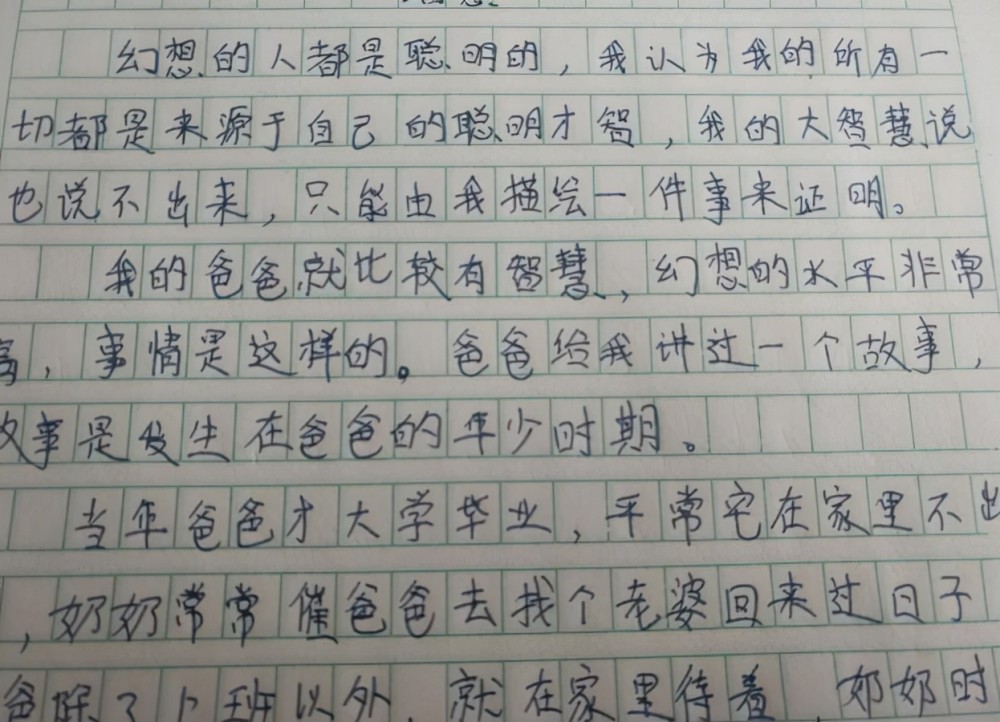 幻想的人都是聪明的，我认为我的所有一
切都是来源于自己的聪明才智，我的大智慧说
也说不出来，只能由我描绘一件事来证明。
我的爸爸就比较有智慧，幻想的水平非常
高，事情是这样的。爸爸给我讲过一个故事，
故事是发生在爸爸的年少时期。
当年爸爸才大学毕业，平常宅在家里不出
，奶奶常常催爸爸去找个老婆回来过日子
爸除了上班以外，就在家里待着，奶奶时